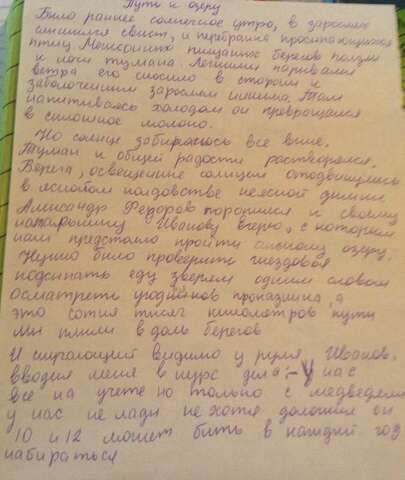 Путь к озеру
Было раннее солнечное утро, в зарослях
слышился свист, и перебранка просыпающихся
птиц Мансониих пищаных берегов ползли
к нам туман. Легкими порывами
ветра его сносило в сторону к
заболоченным зарослям Там
напитываясь холодом он превращался
в сплошное молоко.
Но солнце забиралось все выше,
Туман к общей радости растворялся.
Берега, освещенные солнцем отодвинулись
в колдовстве неясной дымки
Александр Федоров торопился к своему
напарнику Иванову егерю, с которым
нам предстояло пройти озеру.
Нужно было проверить гнездовья
подсыпать еду зверям одним словом
осмотреть угодий, а
это сотня тисяч километров пути
Мы плыли в доль берегов
И видимо у руля, Иванов,
вводил меня в курс дела:- У нас
все на учете но только с медведями
у нас не лады не хотя должен он
10 и 12 может быть в каждый год
набираться